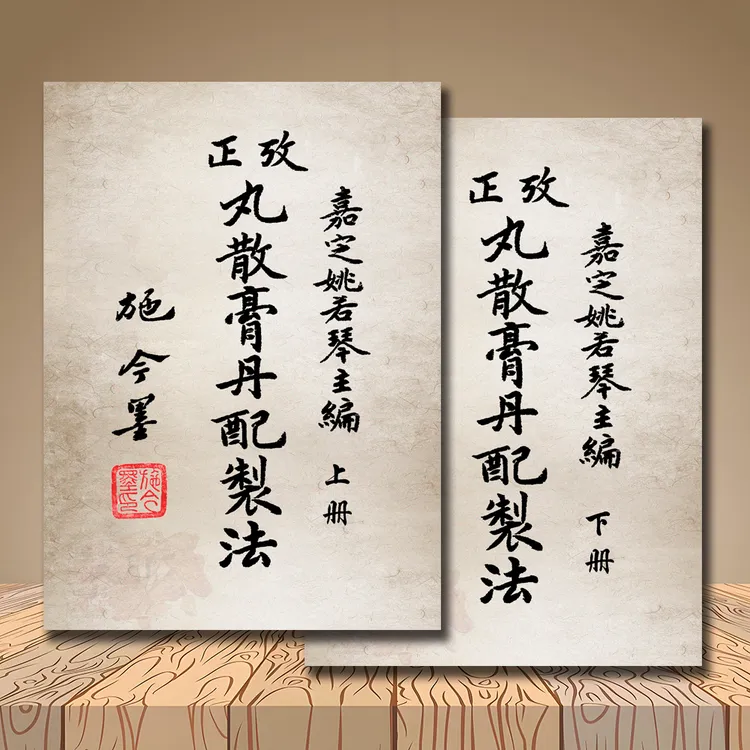 嘉定姚若琴主編 上冊
攷正
丸散膏丹配製法
施今墨
施今墨印
嘉定姚若琴主編 下冊
攷正
丸散膏丹配製法